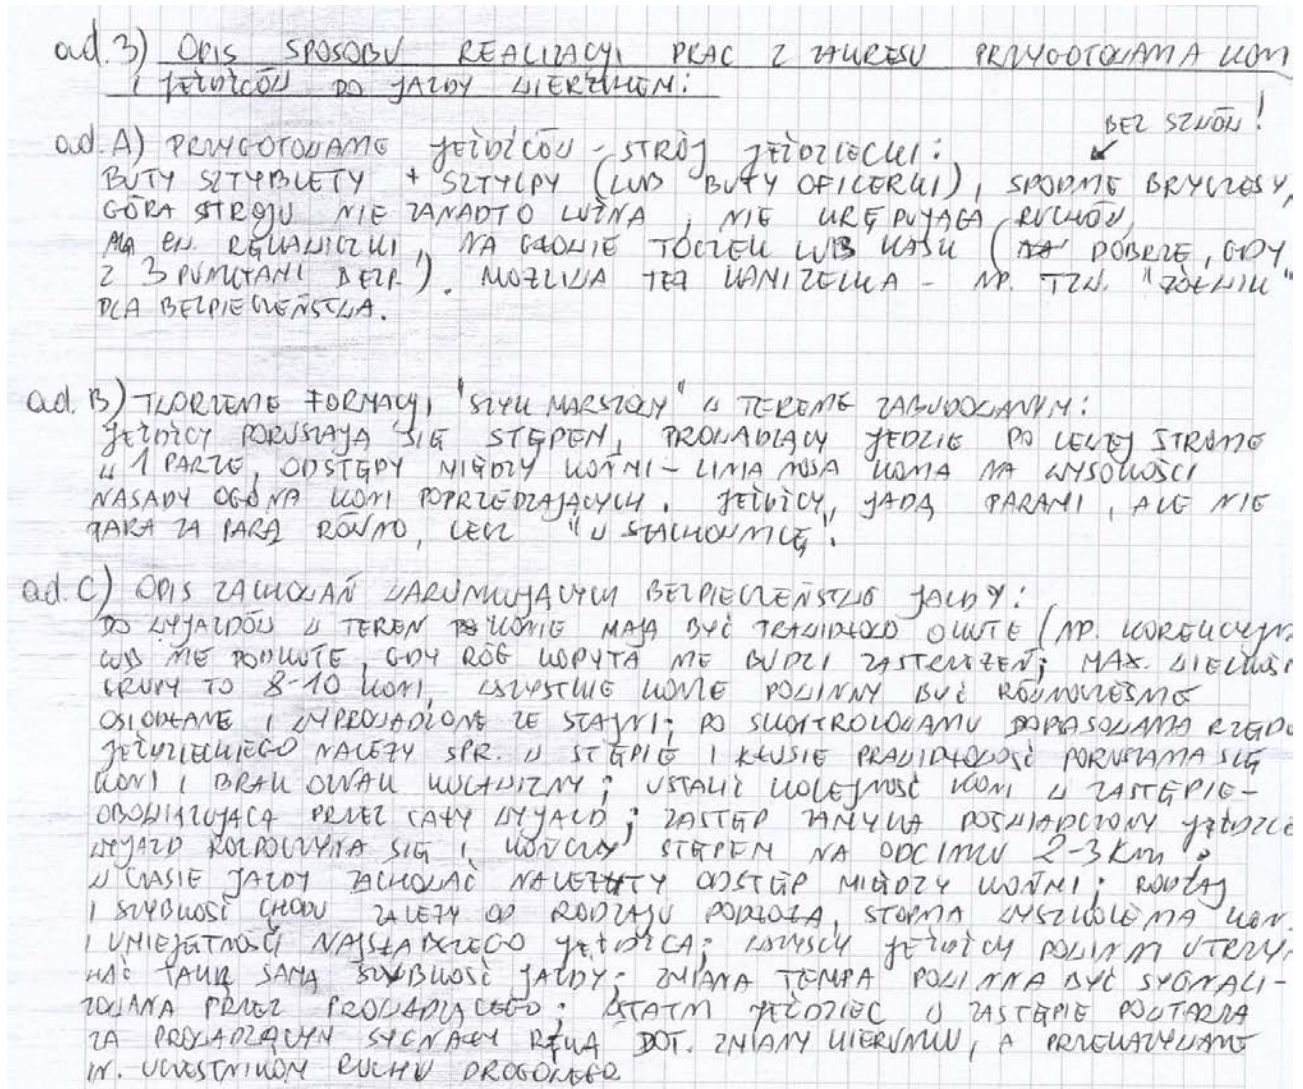 ad. 3) OPIS SPOSOBU REALIZACJI PRAC Z ZAKRESU PRZYGOTOWANIA KONI
I JEŹDŹCÓW DO JAZDY WIERZCHEM:
BEZ SZWÓW!
ad. A) PRZYGOTOWANIE JEŹDŹCÓW - STRÓJ JEŹDZIECKI:
BUTY SZTYBLETY + SZTYLPY (LUB BUTY OFICERKI), SPODNIE BRYCZESY,
GÓRA STROJU NIE ZANADTO LUŹNA, NIE KRĘPUJĄCA RUCHÓW,
EW. RĘKAWICZKI, NA GŁOWIE TOCZEK LUB KASK (DOBRZE, GDY
Z 3 PUNKTAMI BEZP.). MOŻLIWA TEŻ KAMIZELKA - NP. TZW. "ŻÓŁWIK"
DLA BEZPIECZEŃSTWA.
ad. B) TWORZENIE FORMACJI "SZYK MARSZOWY" W TERENIE ZABUDOWANYM:
JEŹDŹCY PORUSZAJĄ SIĘ STĘPEM, PROWADZĄCY JEDZIE PO LEWEJ STRONIE
W 1 PARZE, ODSTĘPY MIĘDZY KOŃMI - LINIA NOSA KONIA NA WYSOKOŚCI
NASADY OGONA KONI POPRZEDZAJĄCYCH. JEŹDŹCY JADĄ PARAMI, ALE NIE
PARA ZA PARĄ RÓWNO, LECZ "W SZACHOWNICĘ".
ad. C) OPIS ZACHOWAŃ WARUNKUJĄCYCH BEZPIECZEŃSTWO JAZDY:
DO WYJAZDÓW W TEREN KONIE MAJĄ BYĆ PRAWIDŁOWO OKUTE (NP. KOREKCYJNIE
LUB NIE PODKUTE, GDY RÓG KOPYTA NIE BUDZI ZASTRZEŻEŃ; MAX. WIELKOŚĆ
GRUPY TO 8-10 KONI, WSZYSTKIE KONIE POWINNY BYĆ RÓWNOCZEŚNIE
OSIODŁANE I WYPROWADZONE ZE STAJNI; PO SKONTROLOWANIU DOPASOWANIA RZĘDU
JEŹDZIECKIEGO NALEŻY SPR. W STĘPIE I KŁUSIE PRAWIDŁOWOŚĆ PORUSZANIA SIĘ
KONI I BRAK OZNAK KULAWIZNY; USTALIĆ KOLEJNOŚĆ KONI W ZASTĘPIE -
OBOWIĄZUJĄCĄ PRZEZ CAŁY WYJAZD; ZASTĘP ZAMYKA DOŚWIADCZONY JEŹDZIEC
WYJAZD ROZPOCZYNA SIĘ I KOŃCZY STĘPEM NA ODCINKU 2-3 Km;
W CZASIE JAZDY ZACHOWAĆ NALEŻYTY ODSTĘP MIĘDZY KOŃMI; RODZAJ
I SZYBKOŚĆ CHODU ZALEŻY OD RODZAJU PODŁOŻA, STOPNIA WYSZKOLENIA KONI
I UMIEJĘTNOŚCI NAJSŁABSZEGO JEŹDŹCA; WSZYSCY JEŹDŹCY POWINNI UTRZY-
MAĆ TAKĄ SAMĄ SZYBKOŚĆ JAZDY; ZMIANA TEMPA POWINNA BYĆ SYGNALI-
ZOWANA PRZEZ PROWADZĄCEGO; OSTATNI JEŹDZIEC W ZASTĘPIE POWTARZA
ZA PROWADZĄCYM SYGNAŁY RĘKĄ DOT. ZMIANY KIERUNKU, A PRZEKAZYWANE
IN. UCZESTNIKOM RUCHU DROGOWEGO